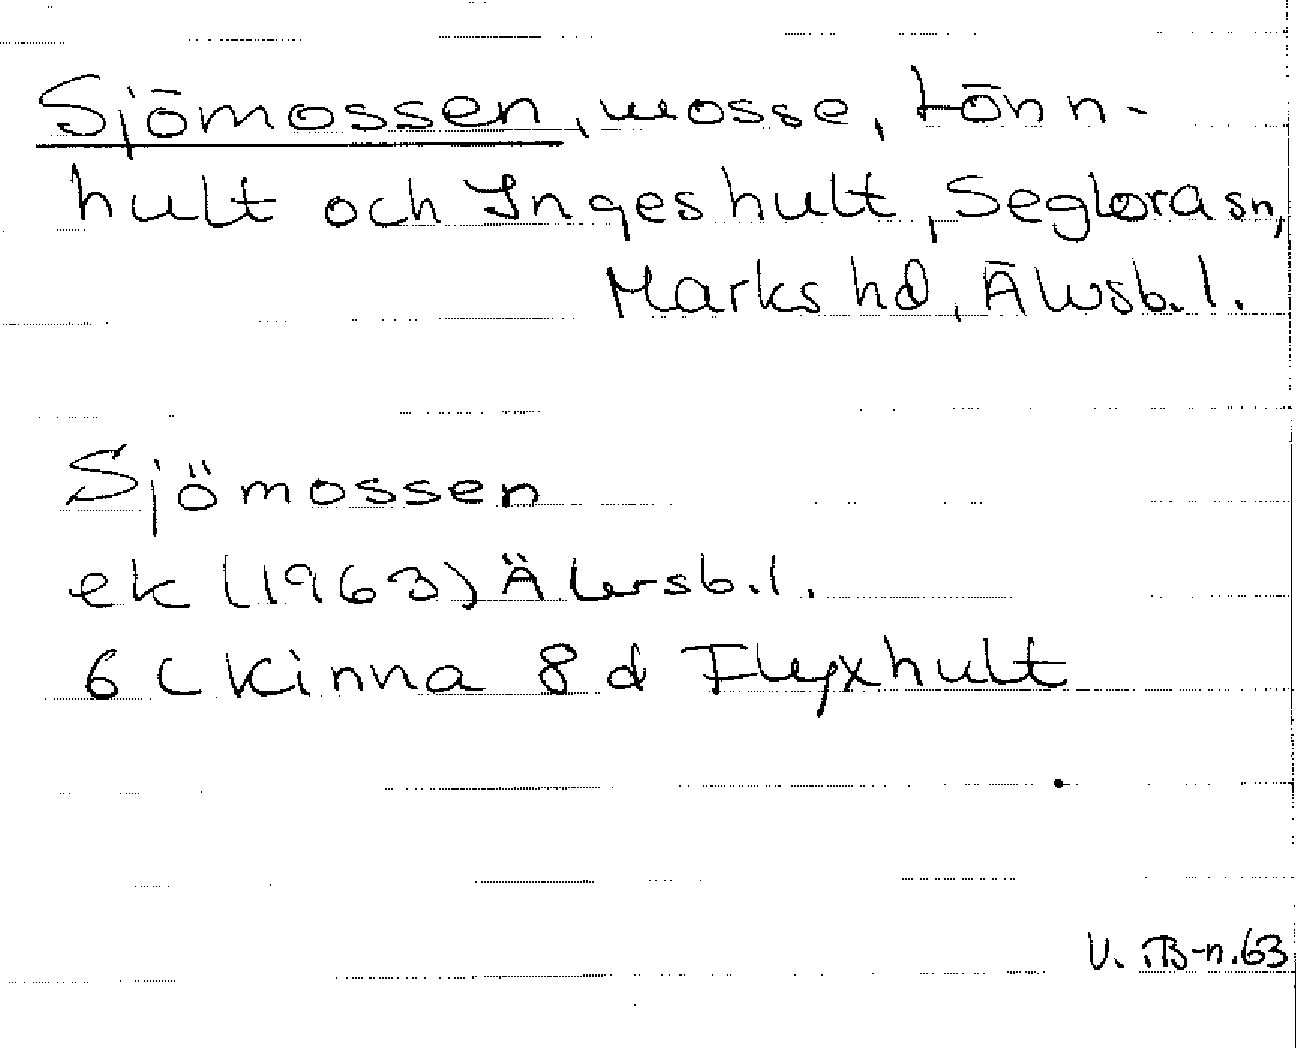 Sjömossen, mosse, Lönn-
hult och Ingeshult, Seglora sn,
Marks hd, Älvsb. l.
Sjömossen
ek (1963) Älvsb. l.
6 C Kinna 8 d Flyxhult
V. 63